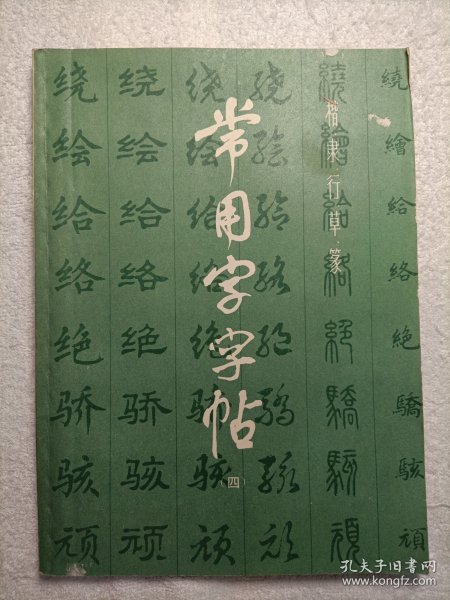 常用字字帖
四
楷·隶·行·草·篆
绕绘给络绝骄骇顽
绕绘给络绝骄骇顽
绕绘给络绝骄骇顽
繞繪給絡絶驕駭頑
繞繪給絡絶驕駭頑
繞繪給絡絶驕駭頑
孔夫子旧书网
www.kongfz.com